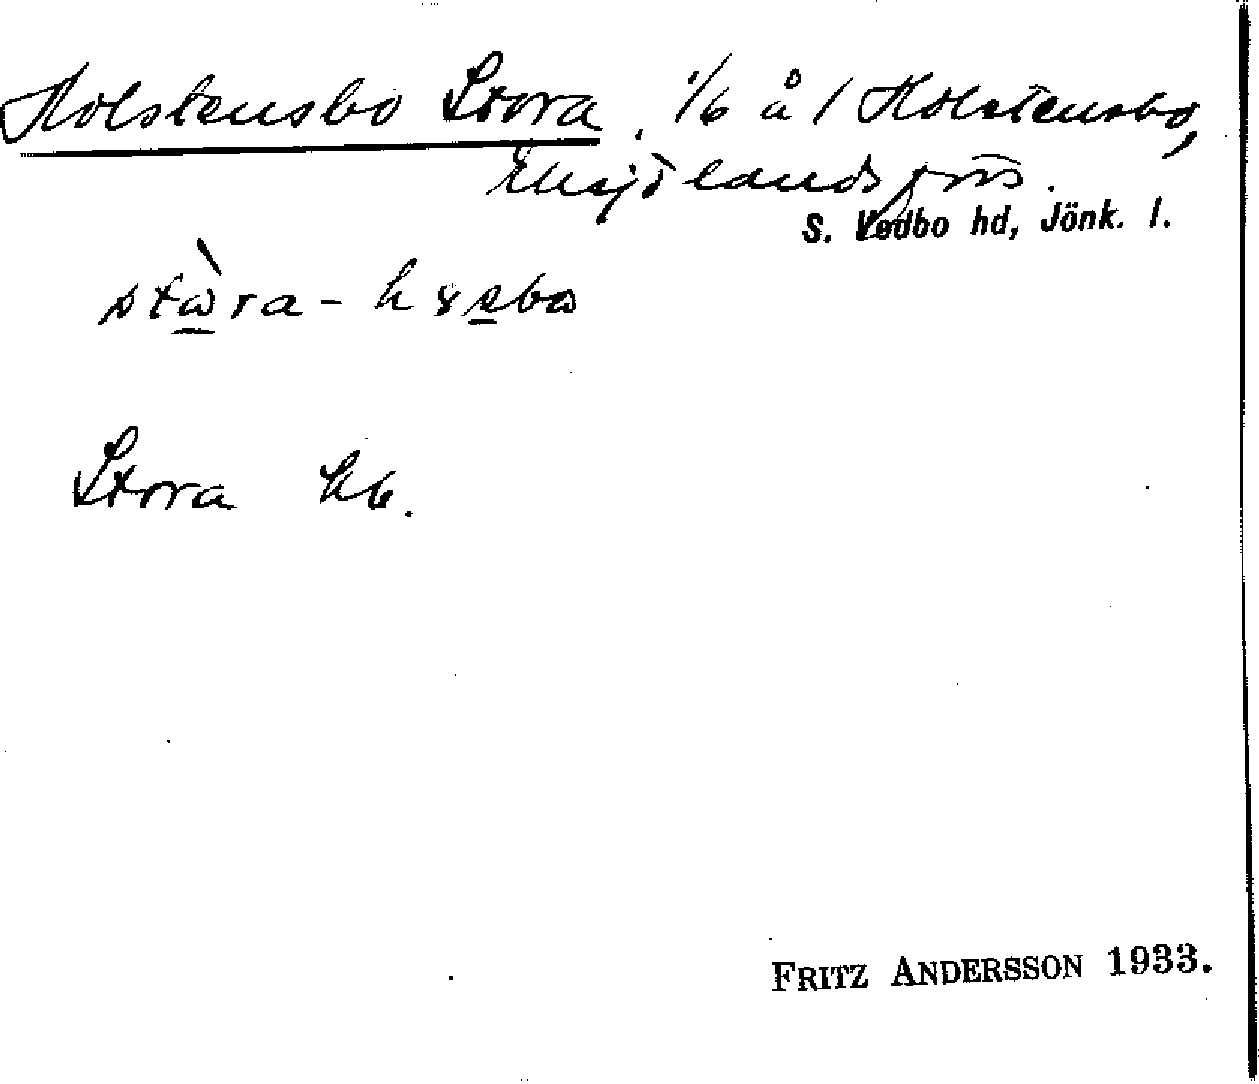 Holstensbo Stora, 1/6 å 1 Holstensbo,
Eksjö landsförs.
S. Vedbo hd, Jönk. l.
Stora hb.
FRITZ ANDERSSON 1933.